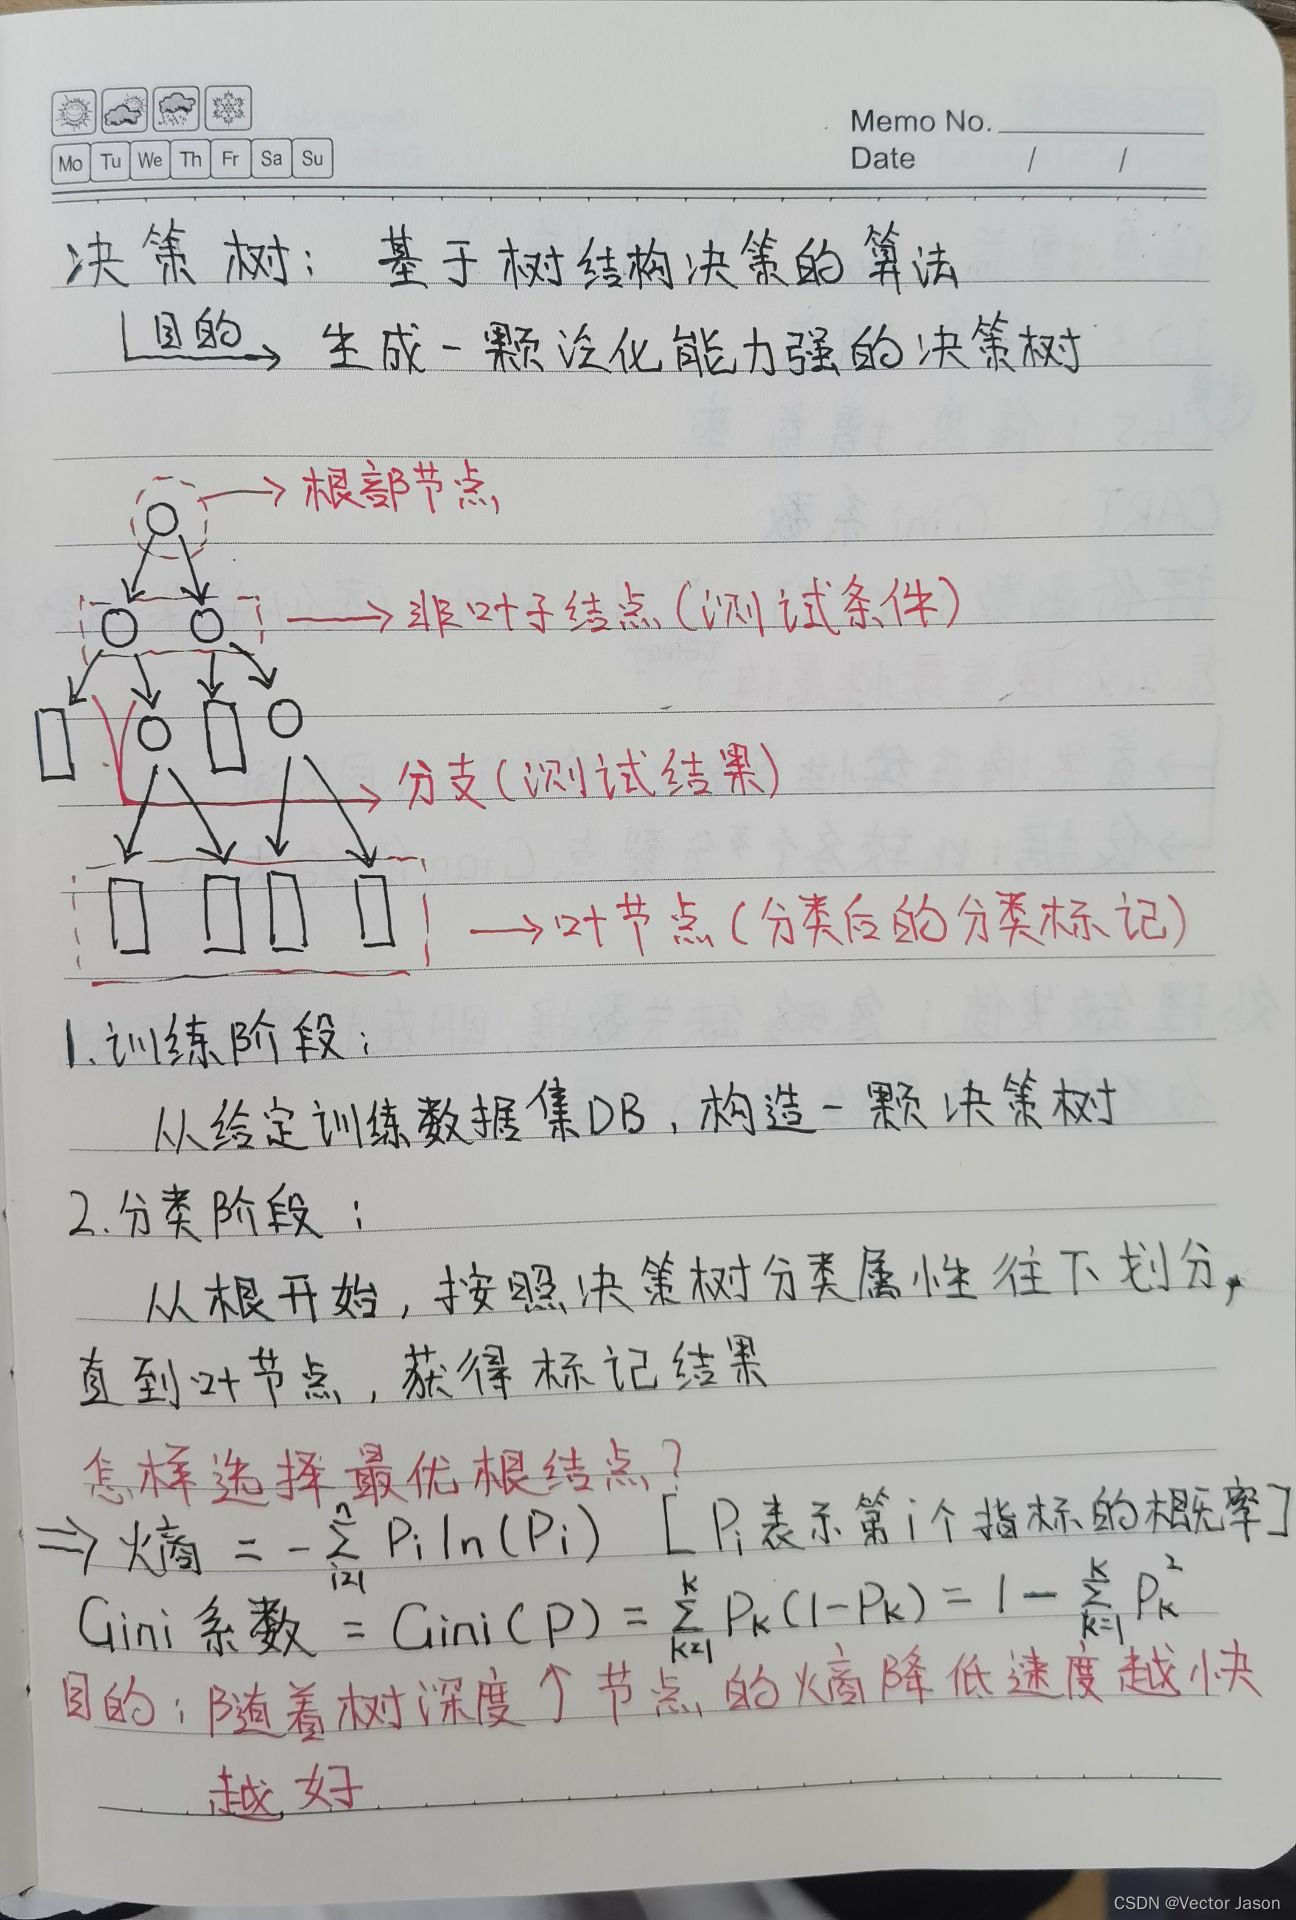 Memo No.
Mo Tu We Th Fr Sa Su
Date / /
决策树：基于树结构决策的算法
目的 生成一颗泛化能力强的决策树
根部节点
非叶子结点(测试条件)
分支(测试结果)
叶节点(分类后的分类标记)
1.训练阶段：
从给定训练数据集DB，构造一颗决策树
2.分类阶段：
从根开始，按照决策树分类属性往下划分，
直到叶节点，获得标记结果
怎样选择最优根结点？
⇒ 熵 = -∑_{i=1}^{n} Pi ln(Pi) [Pi表示第i个指标的概率]
Gini系数 = Gini(P) = ∑_{k=1}^{K} Pk(1-Pk) = 1 - ∑_{k=1}^{K} Pk²
目的：随着树深度↑节点的熵降低速度越快
越好
CSDN @Vector Jason